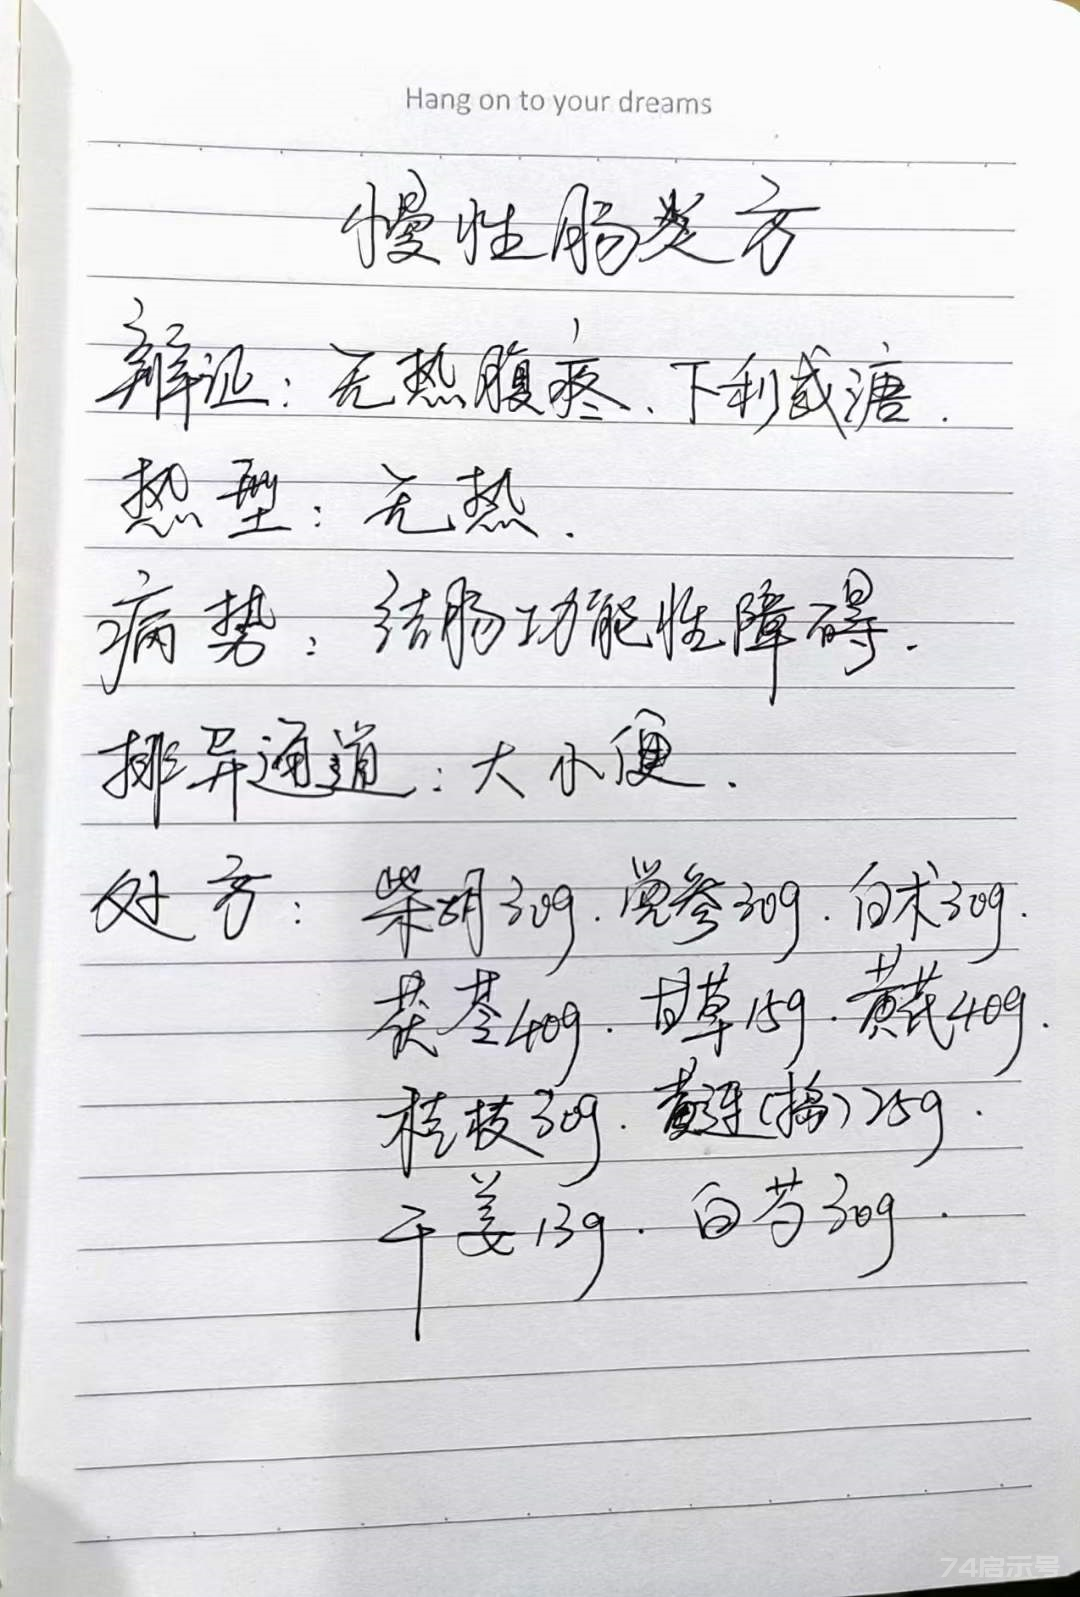 Hang on to your dreams
慢性肠炎方
辩证：无热腹疼、下利或溏.
热型：无热.
病势：结肠功能性障碍.
排异通道：大小便.
处方：柴胡30g.党参30g.白术30g.
茯苓40g.甘草15g.黄芪40g.
桂枝30g.黄连(捣)25g.
干姜13g.白芍30g.
74启示号